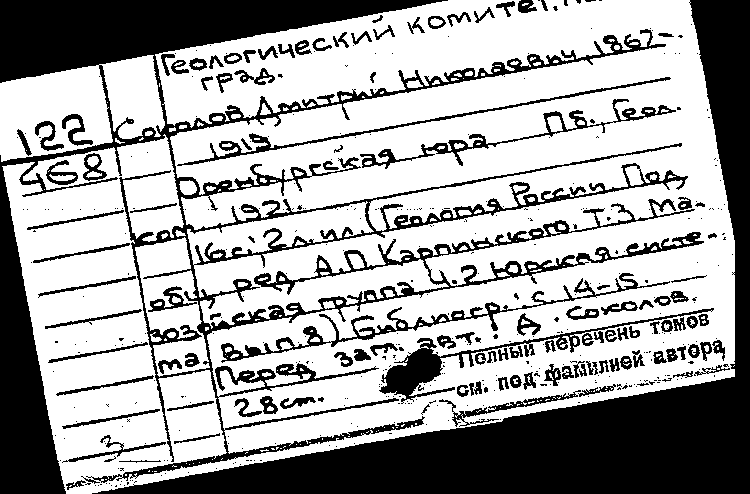 Геологический комитет,
град.
122
468
Соколов, Дмитрий Николаевич, 1867-
1919.
Оренбургская юра. Пб., Геол.
ком., 1921.
16 с.; 2 л. ил. (Геология России. Под
общ. ред. А.П. Карпинского. Т.3. Ма-
зозойская группа, ч.2 Юрская систе-
ма. Вып.8) Библиогр.: с 14-15.
Перед загл. авт.: Д. Соколов.
28 см.
Полный перечень томов
см. под фамилией автора
3